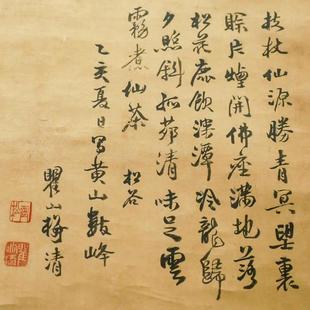 扶杖仙源勝青冥望裏
賒片煙開佛座滿地落
松花鹿飲深潭冷龍歸
夕照斜孤茆清味足雲
霧煮仙茶 松谷
乙亥夏日寫黄山數峰
瞿山梅清